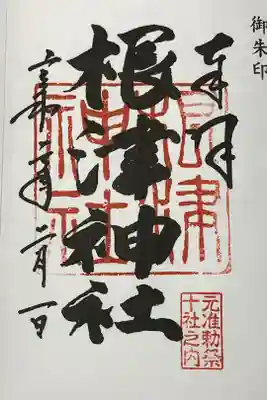 御朱印
奉拝
根津神社
根津
神社
元准勅祭
十社之内
令和 年二月一日